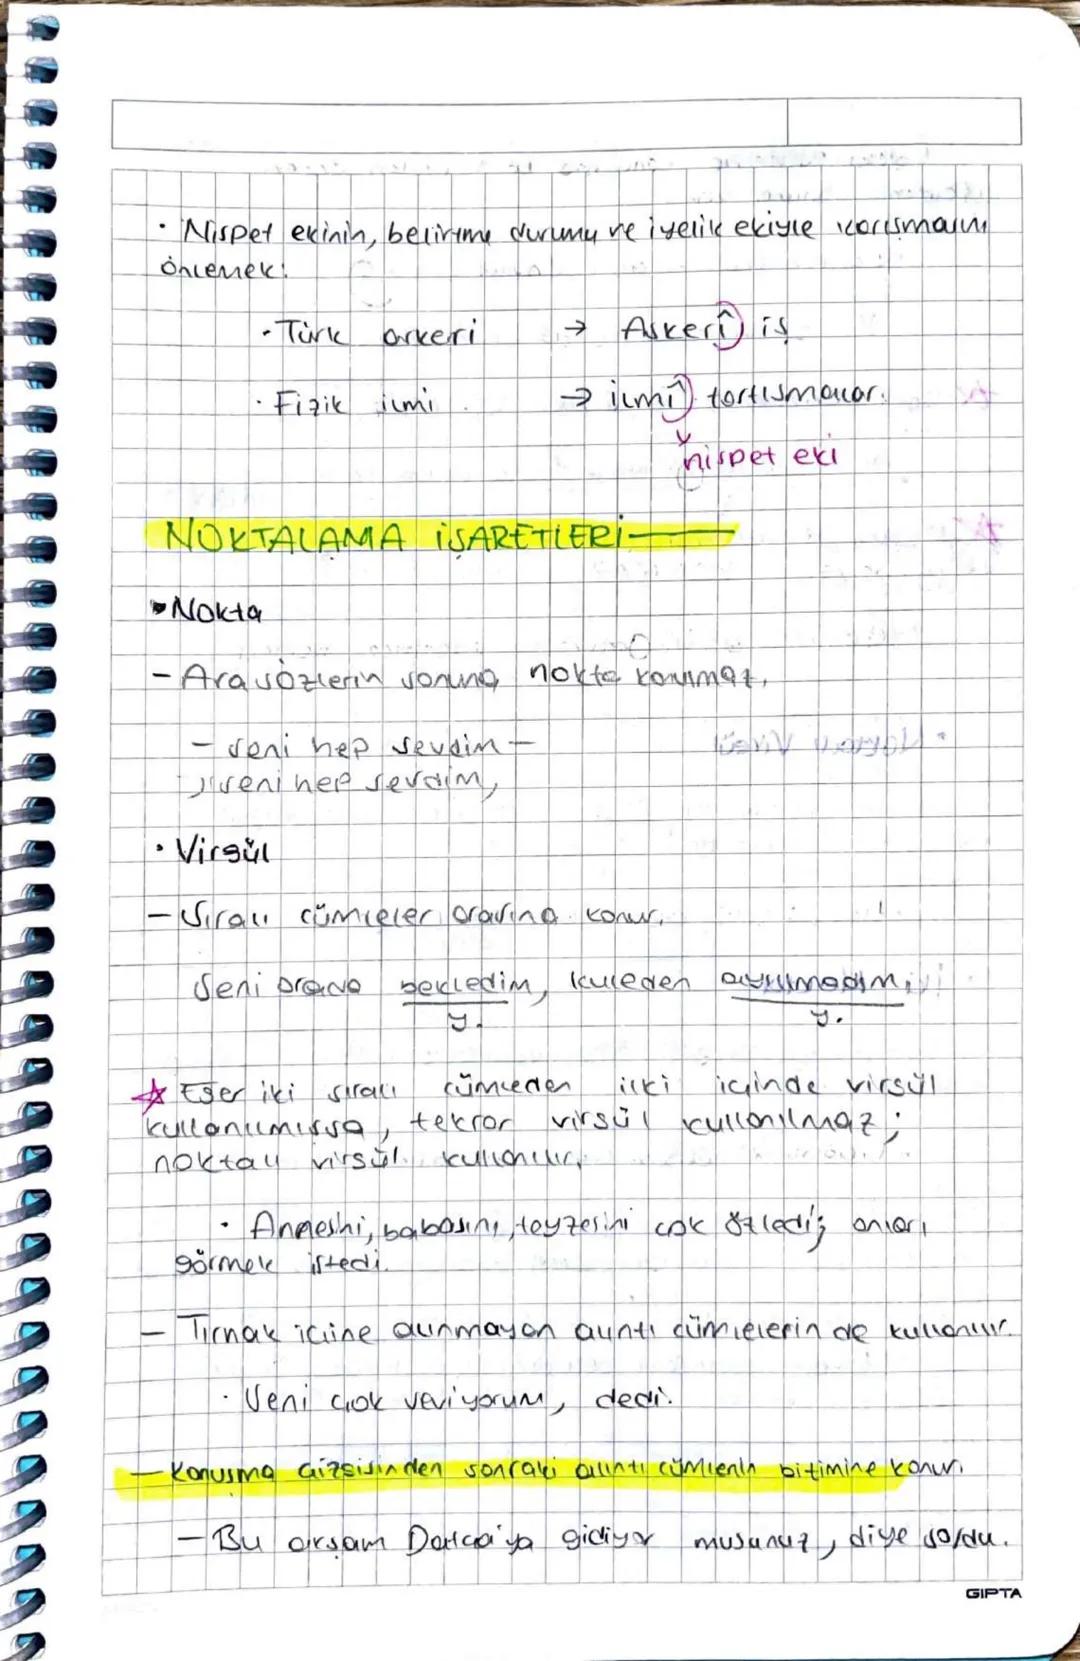 · Nispet ekinin, belirtme durumu ve iyelik ekiyle karışmasını
önlemek:
· Türk askeri → Askerî iş
· Fizik ilmi → ilmî tartışmalar.
nispet eki
NOKTALAMA İŞARETLERİ
Nokta
- Ara sözlerin sonuna nokta konmaz.
- seni hep sevdim -
, seni hep sevdim,
· Virgül
- Sıralı cümleler arasına konur.
Seni orada bekledim, kuleden ayrılmadım.
y. y.
☆ Eğer iki sıralı cümleden ilki içinde virgül
kullanılmışsa, tekrar virgül kullanılmaz;
noktalı virgül kullanılır.
· Annesini, babasını, teyzesini çok özledi; onları
görmek istedi.
- Tırnak içine alınmayan alıntı cümlelerin de kullanılır.
· Seni çok seviyorum, dedi.
- Konuşma çizgisinden sonraki alıntı cümlenin bitimine konur.
- Bu akşam Datça'ya gidiyor musunuz, diye sordu.
GIPTA